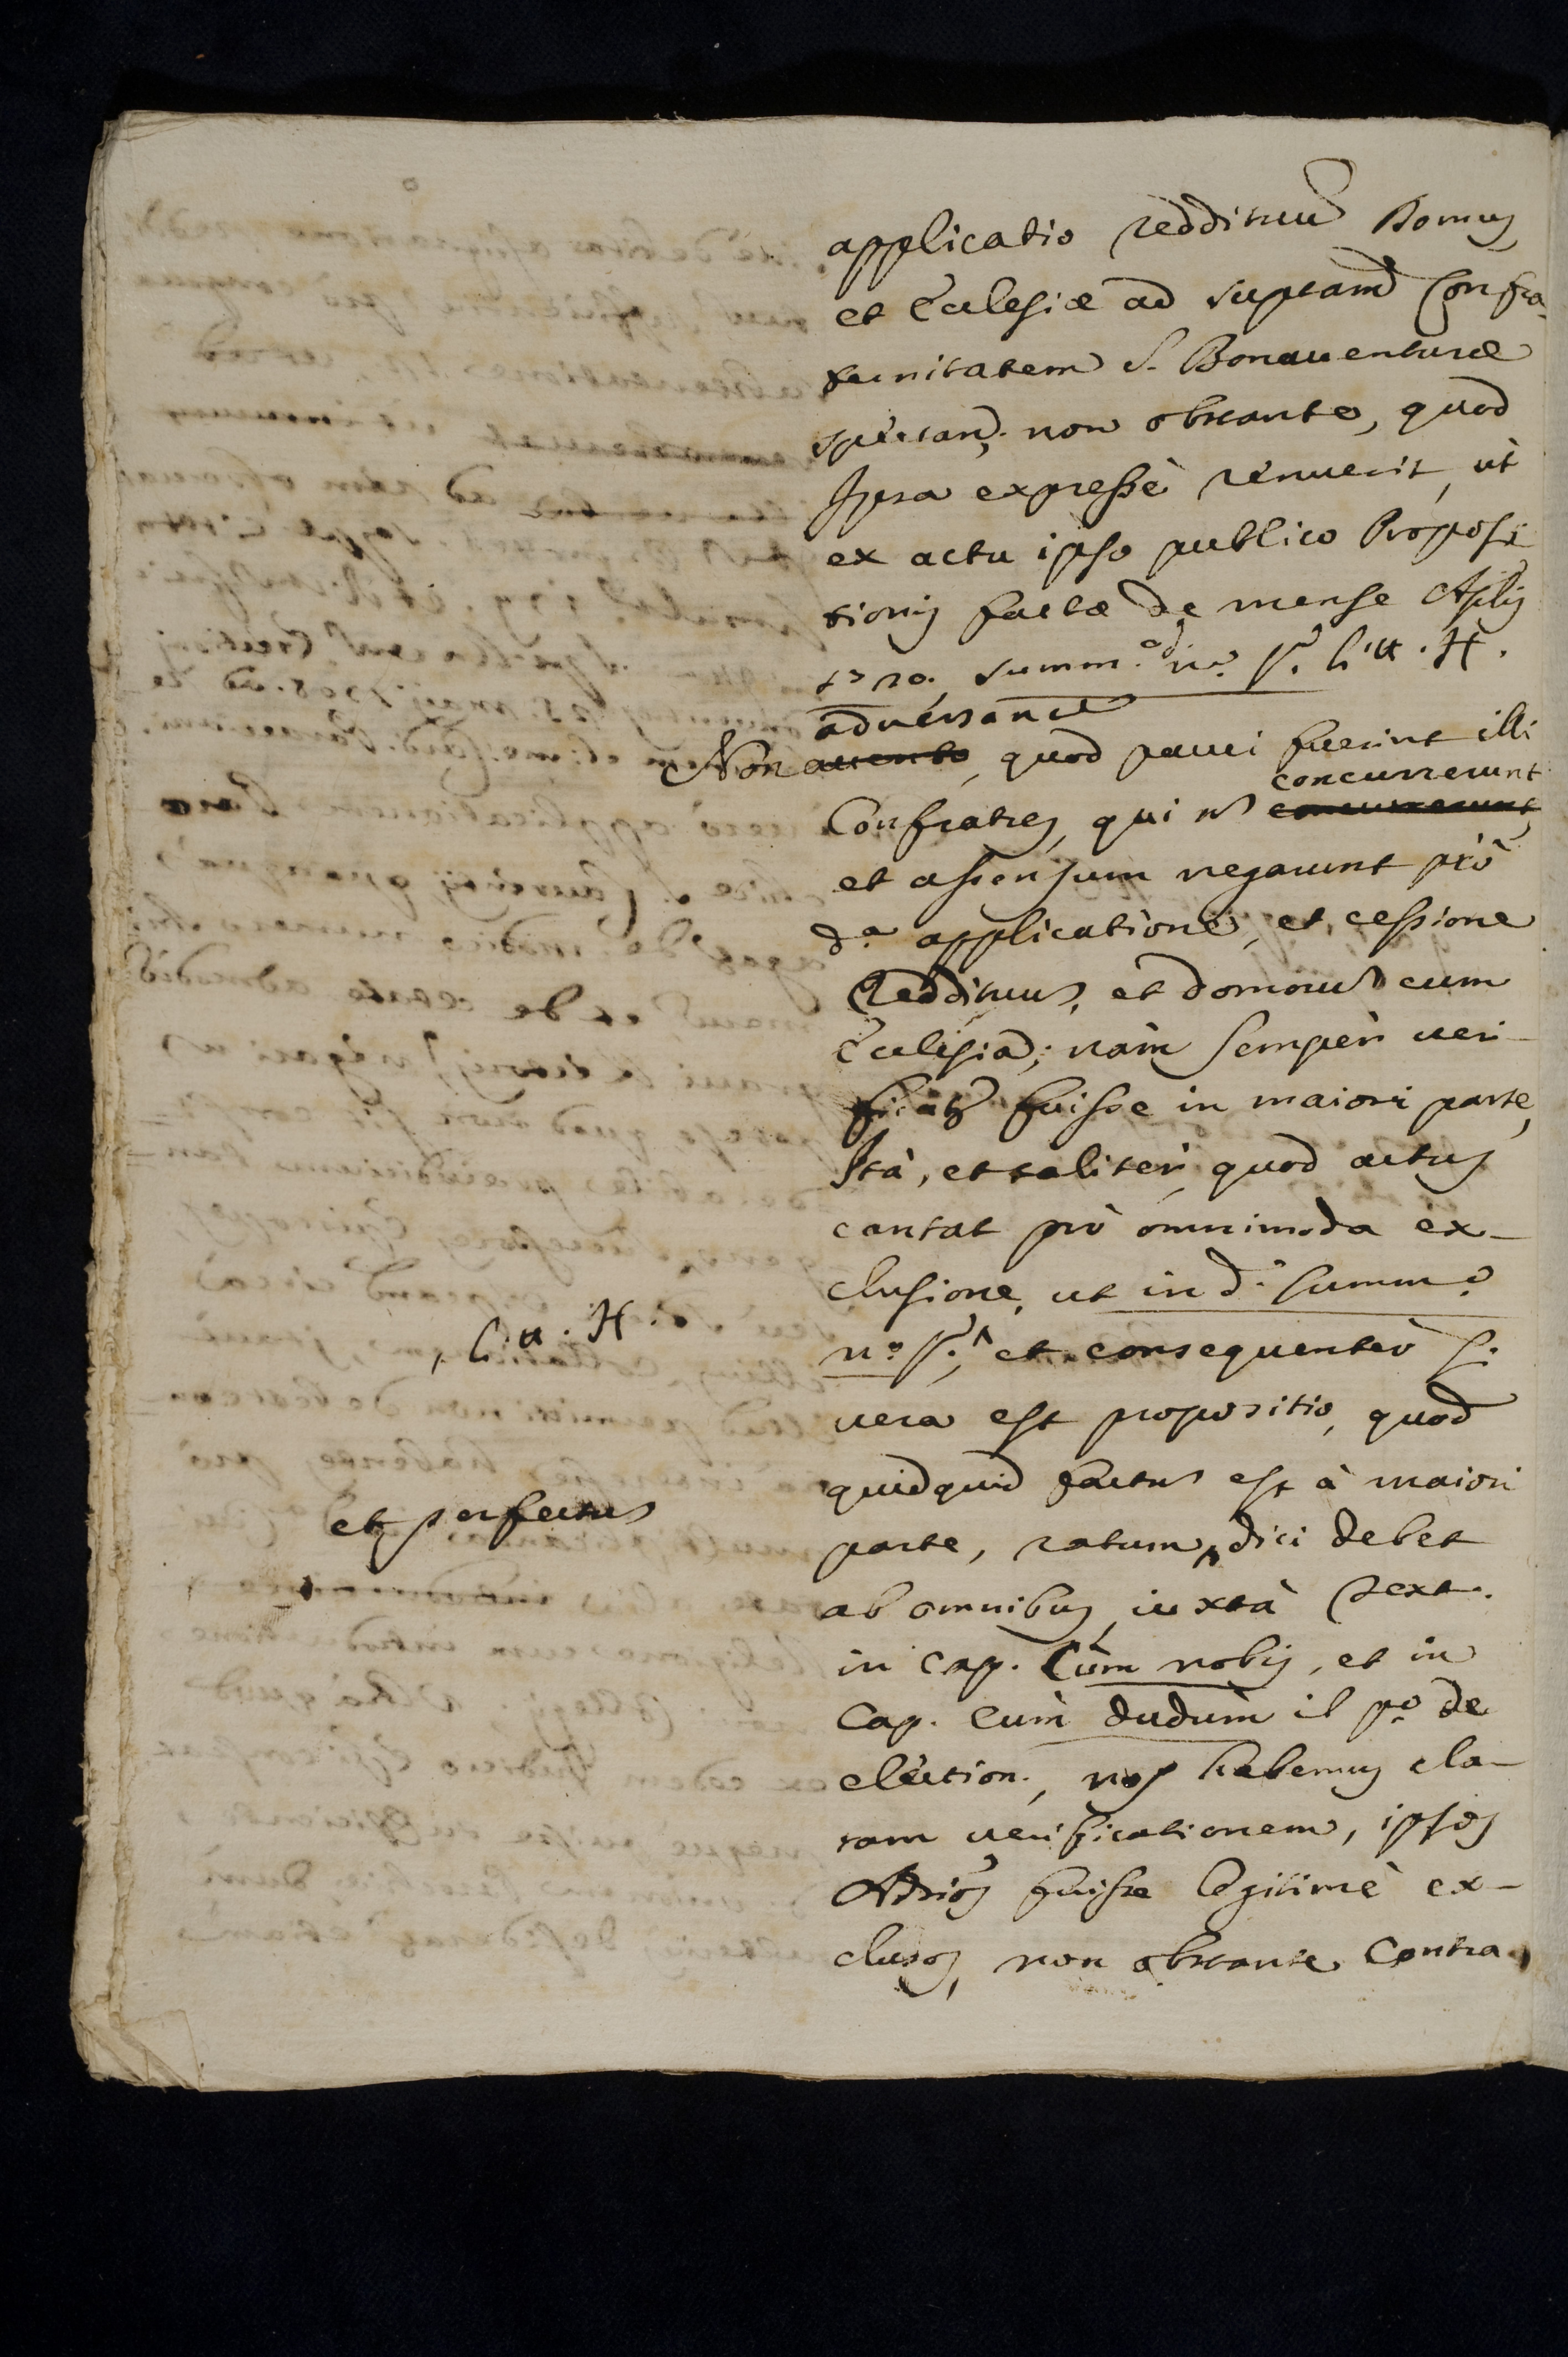 applicatio reddituũ Domus
et Ecclesiæ ad supram Confra-
ternitatem S. Bonauenturæ
spectan; non obstante, quod
Ipsa expressè renuerit, ùt
ex actu ipso publico Proposi
tionis factæ de mense Aplis
1710. summ. nõ. litt. H.
aduersante
Non auente, quod pauci fuerint illi
concurrerunt
Confratres, qui ñ concurrerunt,
et assensum negarunt prò
da. applicatione, et cessione
Reddituus, et domorũ cum
Ecclesia; nàm sempèr ueri-
ficatr fuisse in maiori parte,
Ità, et talitèr, quod actus
cantat prò omnimoda ex-
clusione, ut in d. summ.o
no. et consequentèr
uera est propositio, quod
quidquid factus est à maiori
parte, ratum dici debet
ab omnibus, iuxtà text.
in cap. Cùm nobis, et in
Cap. Cùm dudùm il po. de
election., nos habemus cla-
ram uerificationem, ipsos
Adrios fuisse legitimè ex-
clusos, non obstante contra
, litt. H.
et perfectus